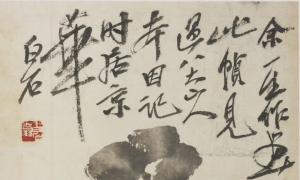 余一生作画
此幀見
過八大山人
本因記
时居京
華
白石